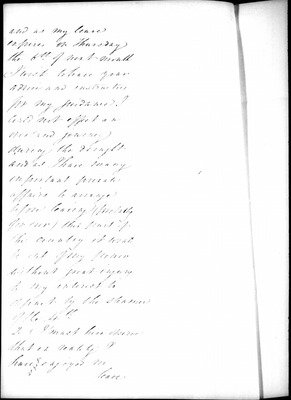 and as my lease
expires on Thursday
the 8th of next month
I wish to have your
advice and instruction
for my guidance. I
could not effect an
overland journey
during the drought
and as I have many
important private
affairs to arrange
before leaving (possibly
for ever) this part of
the country it would
be out of my power
without great injury
to my interest to
depart by the steamer
of the
2. I must here
that is
have engaged in
lease.